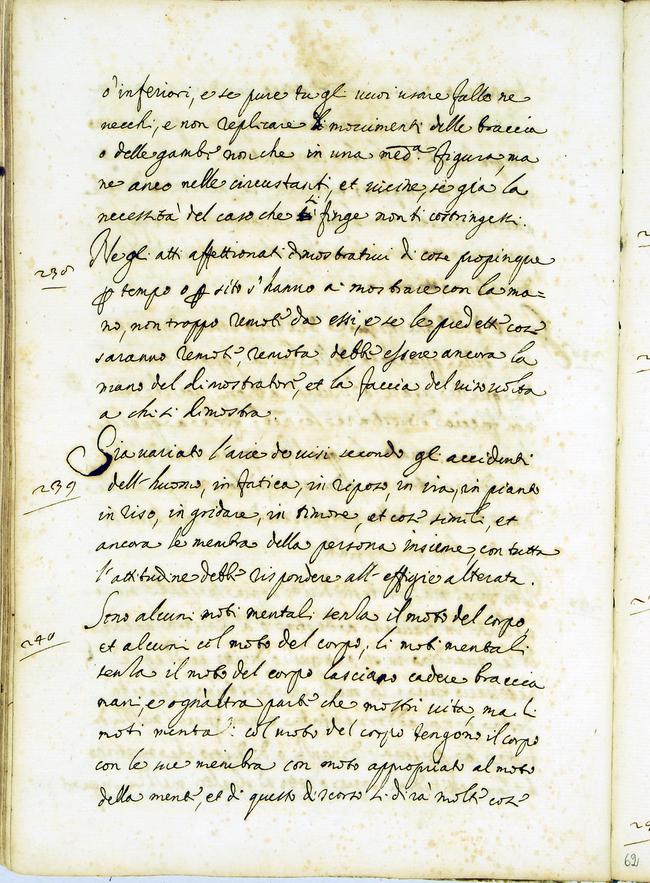 o' inferiori, e se pure tu gli uuoi usare fallo ne
uecchi, e non replicare li mouimenti delle braccia
o delle gambe non che in una med.a figura, ma
ne anco nelle circustanti, et uicine, se già la
necessità del caso che si finge non ti costringessi.
238
Negli atti affettionati dimostratiui di cose propinque
ꝑ tempo o ꝑ sito s'hanno a mostrare con la ma=
no, non troppo remote da essi, e se le pred.tte cose
saranno remote, remota debbe essere ancora la
mano del dimostratore, et la faccia del uiso uolta
a chi si dimostra
239
Sia uariato l'aria de uisi secondo gli accidenti
dell'huomo, in fatica, in riposo, in ira, in pianto
in riso, in gridare, in timore, et cose simili, et
ancora le membra della persona insieme, con tutta
l'attitudine debbe rispondere all'effigie alterata.
240
Sono alcuni moti mentali senza il moto del corpo,
et alcuni col moto del corpo, li moti mentali
senza il moto del corpo lasciano cadere braccia
mani, e ogn'altra parte che mostri uita, ma li
moti mentali col moto del corpo tengono il corpo
con le sue membra con moto appropriato al moto
della mente, et di questo discorso si dirà molte cose
62